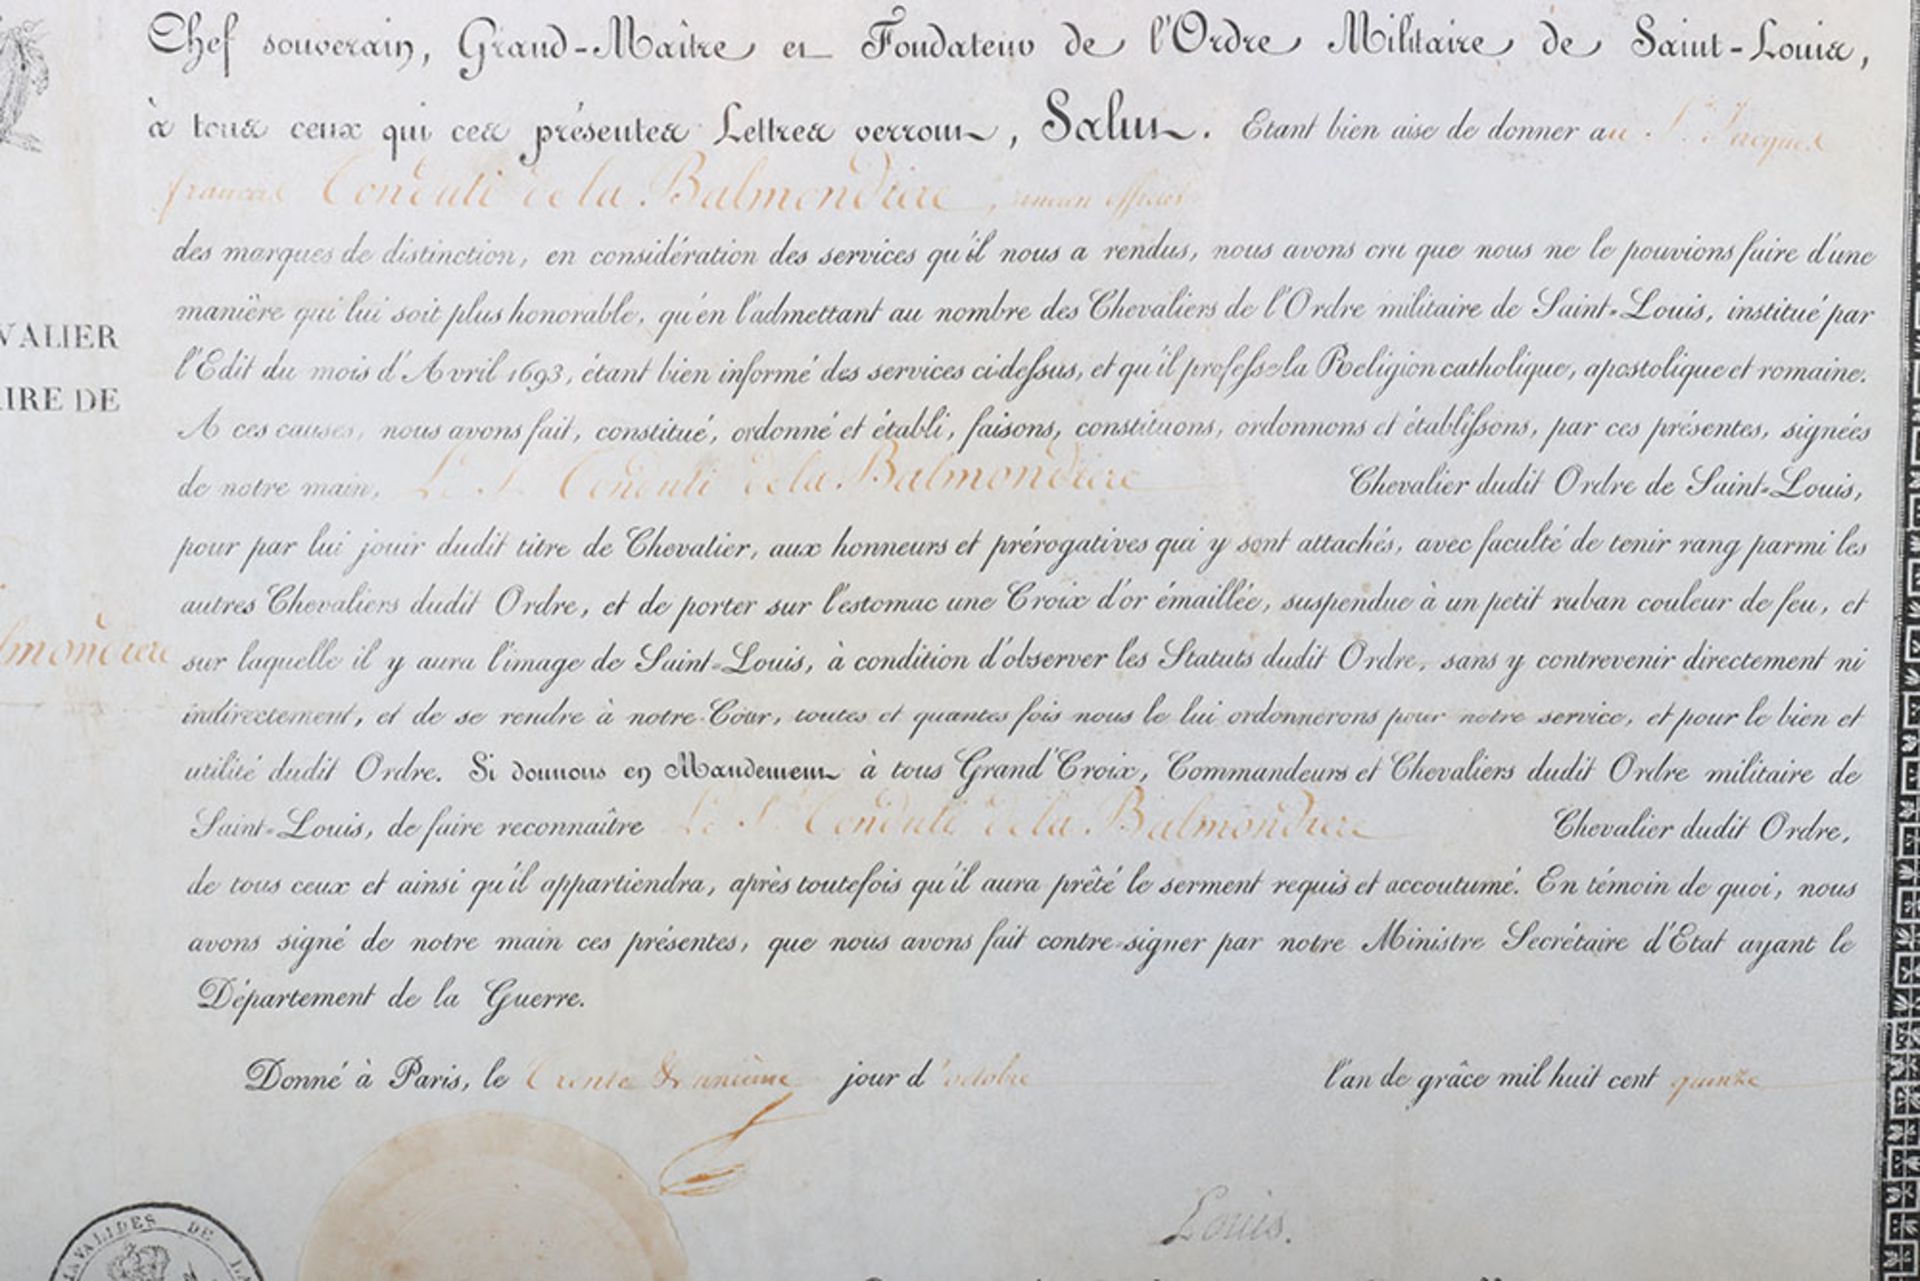 Chef souverain, Grand-Maître et Fondateur de l'Ordre Militaire de Saint-Louis,
à tous ceux qui ces présentes Lettres verront, Salut. Etant bien aise de donner au S.r Jacques
françois Conduti de la Balmondiere, ancien officier
des marques de distinction, en considération des services qu'il nous a rendus, nous avons cru que nous ne le pouvions faire d'une
manière qui lui soit plus honorable, qu'en l'admettant au nombre des Chevaliers de l'Ordre militaire de Saint-Louis, institué par
VALIER
l'Edit du mois d'Avril 1693, étant bien informé des services ci-dessus, et qu'il professe la Religion catholique, apostolique et romaine.
IRE DE
A ces causes, nous avons fait, constitué, ordonné et établi, faisons, constituons, ordonnons et établissons, par ces présentes, signées
de notre main, Le S.r Conduti de la Balmondiere Chevalier dudit Ordre de Saint-Louis,
pour par lui jouir dudit titre de Chevalier, aux honneurs et prérogatives qui y sont attachés, avec faculté de tenir rang parmi les
autres Chevaliers dudit Ordre, et de porter sur l'estomac une Croix d'or émaillée, suspendue à un petit ruban couleur de feu, et
lmondiere
sur laquelle il y aura l'image de Saint-Louis, à condition d'observer les Statuts dudit Ordre, sans y contrevenir directement ni
indirectement, et de se rendre à notre Cour, toutes et quantes fois nous le lui ordonnerons pour notre service, et pour le bien et
utilité dudit Ordre. Si donnons en Mandement à tous Grand'Croix, Commandeurs et Chevaliers dudit Ordre militaire de
Saint-Louis, de faire reconnaître Le S.r Conduti de la Balmondiere Chevalier dudit Ordre,
de tous ceux et ainsi qu'il appartiendra, après toutefois qu'il aura prêté le serment requis et accoutumé. En témoin de quoi, nous
avons signé de notre main ces présentes, que nous avons fait contre-signer par notre Ministre Secrétaire d'Etat ayant le
Département de la Guerre.
Donné à Paris, le trente & unième jour d'octobre l'an de grâce mil huit cent quinze
Louis.
INVALIDES DE LA